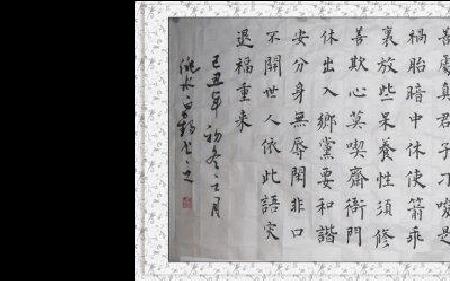 善處真君子刁唆是
禍胎暗中休使箭乖
裏放些呆養性須修
善欺心莫喫齋衙門
休出入鄉黨要和諧
安分身無辱閑非口
不開世人依此語灾
退福重來
己丑年初冬十二月